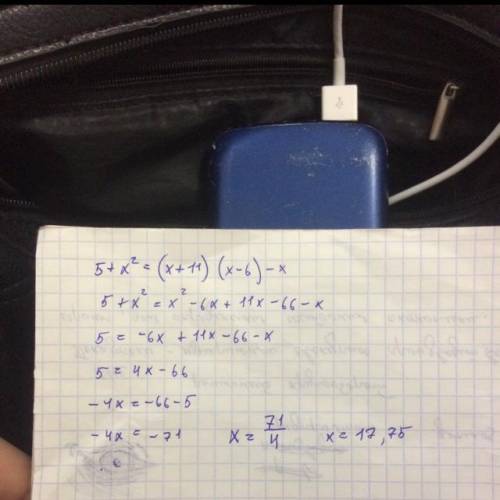 5+x²=(x+11)(x-6)-x
5+x²=x²-6x+11x-66-x
5=-6x+11x-66-x
5=4x-66
-4x=-66-5
-4x=-71 x=71/4 x=17,75